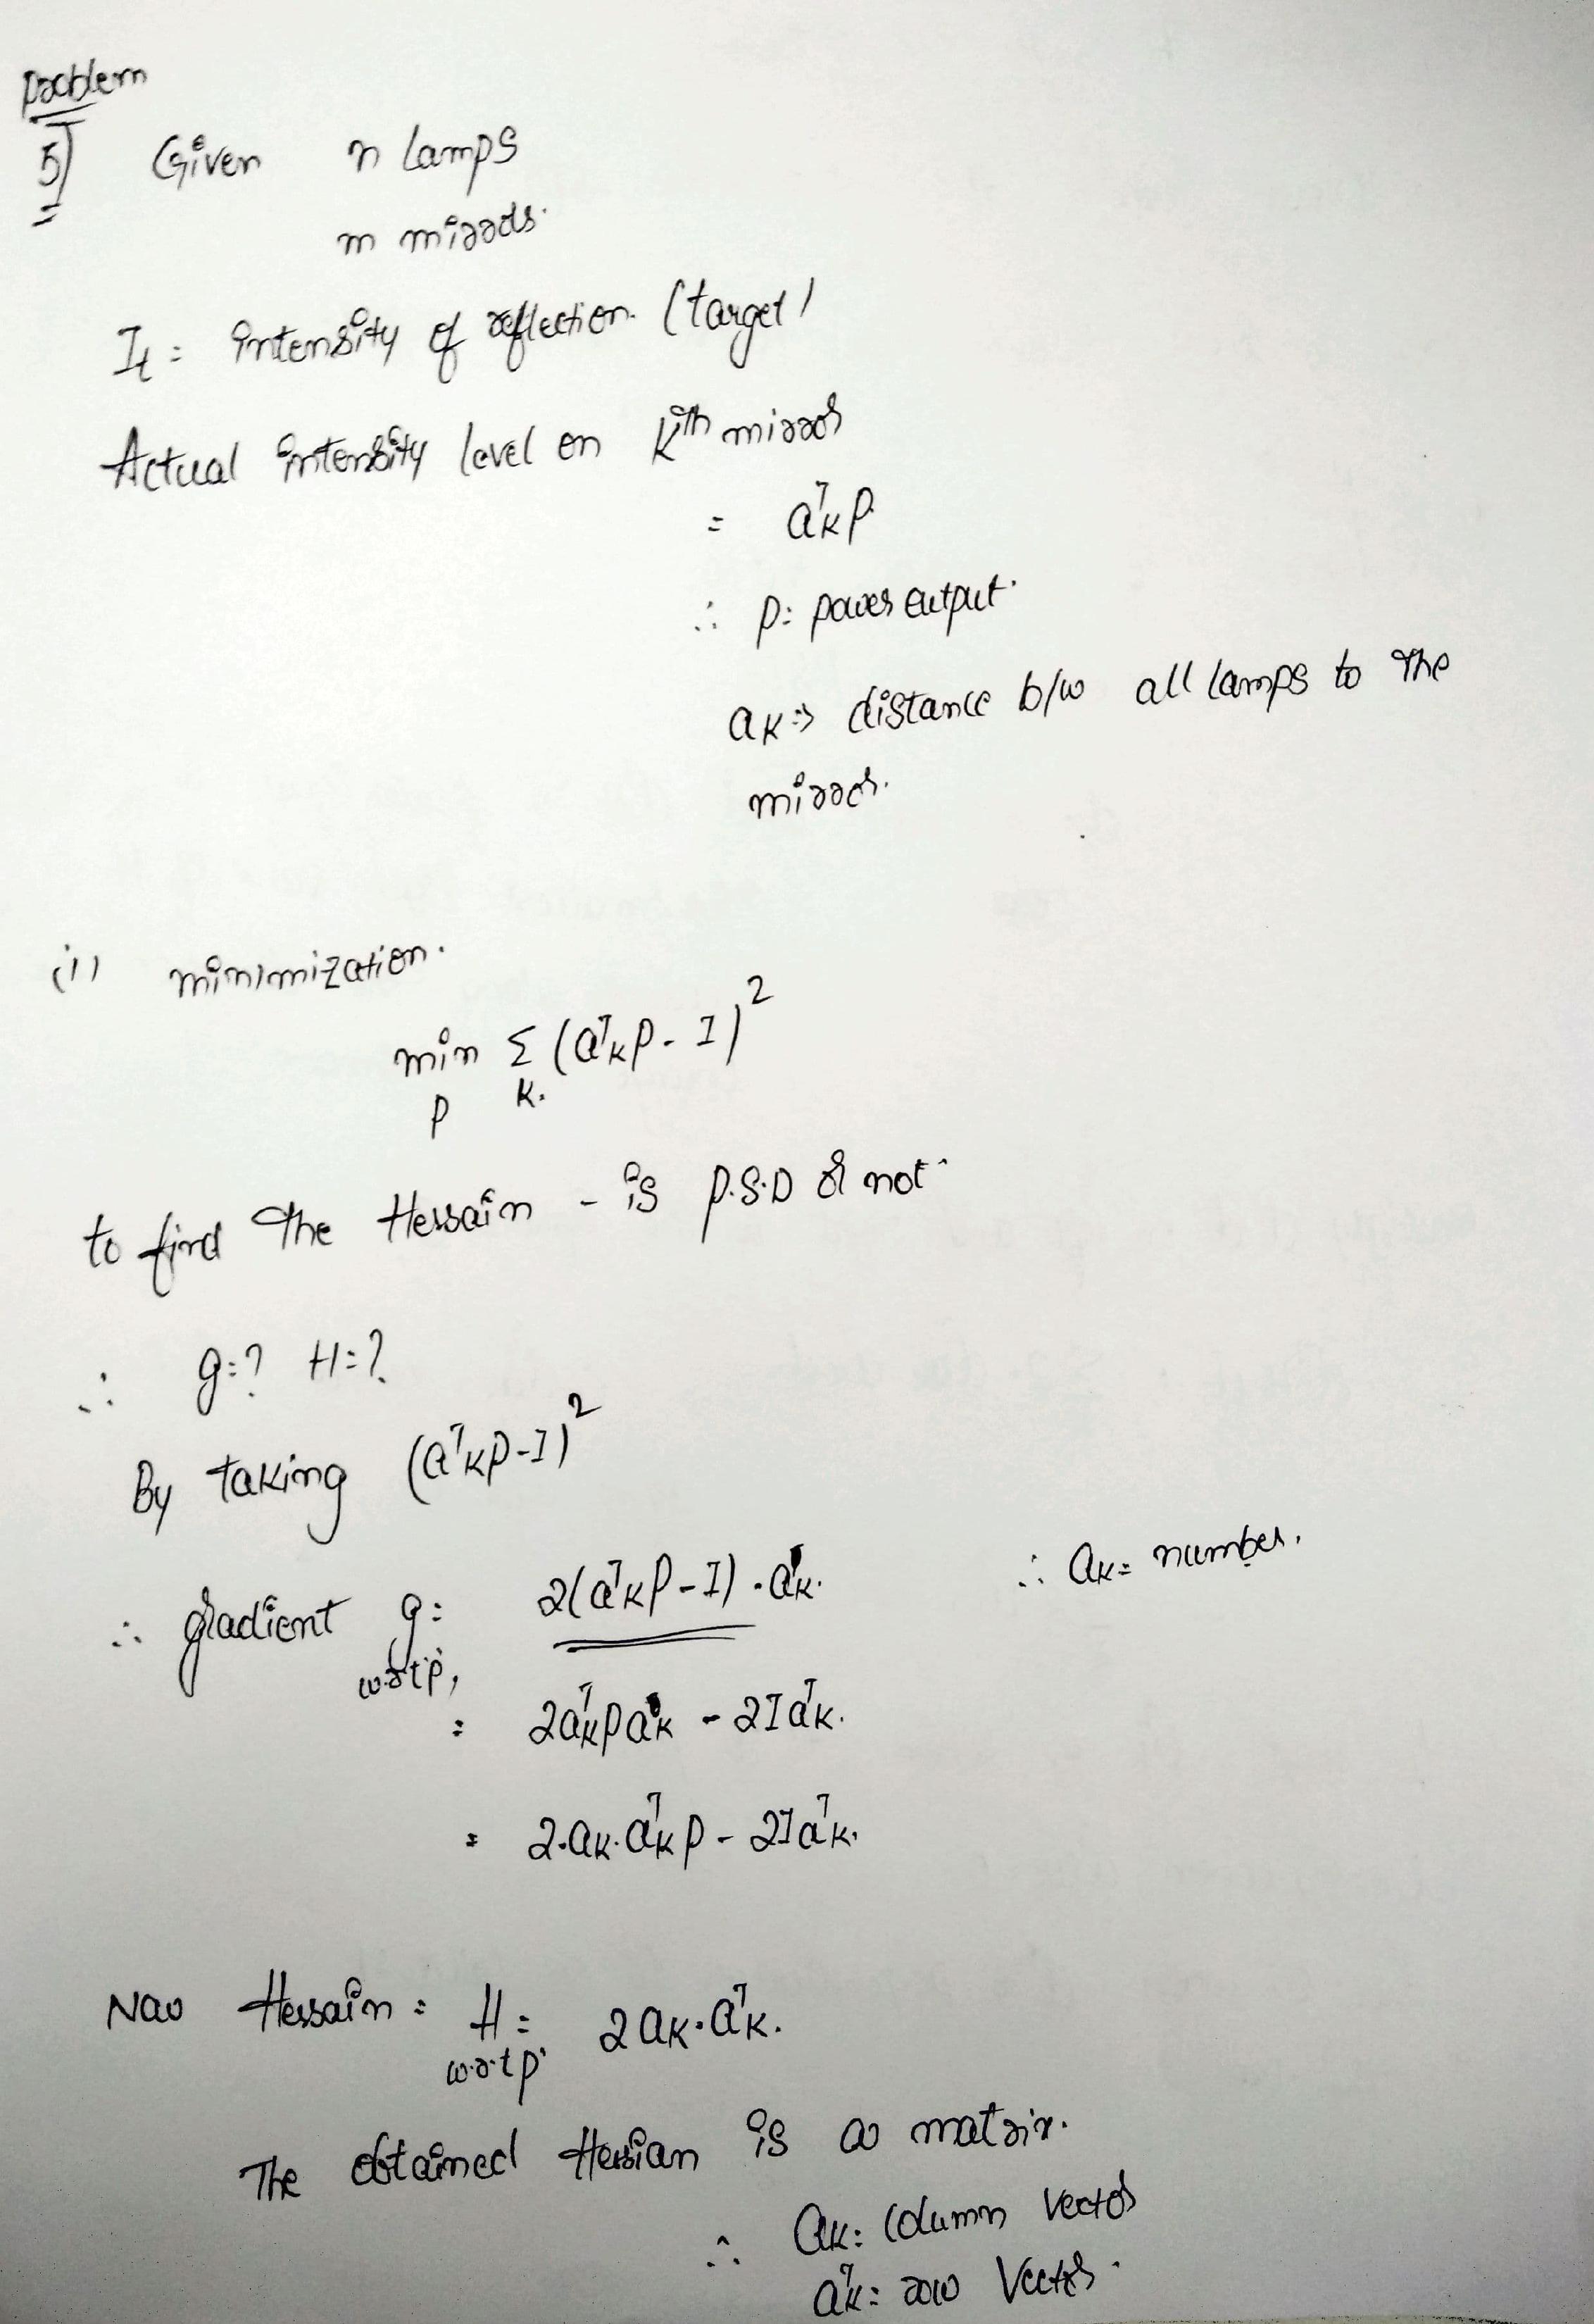 Problem
5] Given n Lamps
m mirrors.
It = intensity of reflection. (target)
Actual intensity level on Kth mirror
= aᵀK P.
∴ P: power output.
aK ⇒ distance b/w all lamps to the
mirror.
(i) minimization.
min Σ (aᵀK P - I)²
P K.
to find the Hessain - is P.S.D or not.
∴ g=? H=?
By taking (aᵀK P - I)²
∴ gradient g = 2(aᵀK P - I) · aK. ∴ aK = number.
w.r.t p,
= 2aᵀK P aK - 2I aᵀK.
= 2·aK·aᵀK P - 2I aᵀK.
Now Hessain = H = 2 aK·aᵀK.
w.r.t p.
The obtained Hessian is a matrix.
∴ aK = column vector
aᵀK = row Vector.